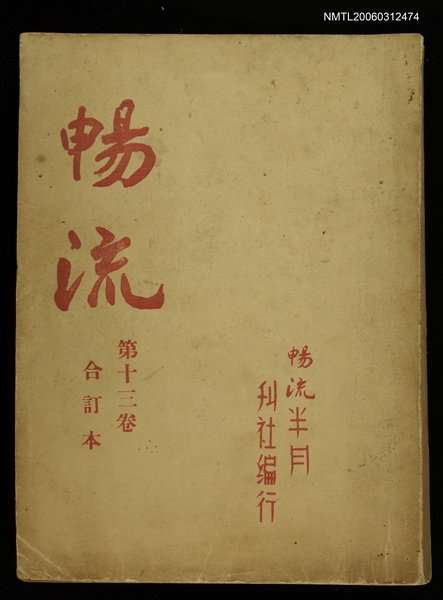 NMTL20060312474
暢流
第十三卷
合訂本
暢流半月
刋社編行